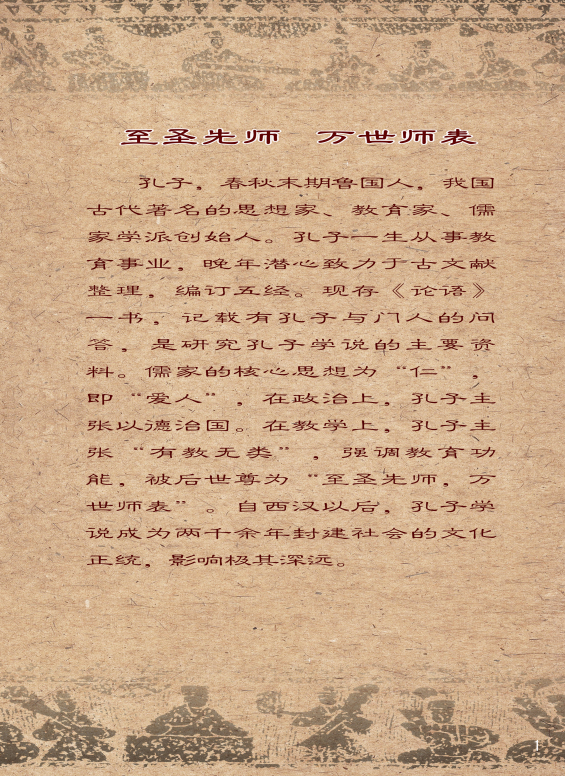 至圣先师 万世师表
孔子，春秋末期鲁国人，我国
古代著名的思想家、教育家、儒
家学派创始人。孔子一生从事教
育事业，晚年潜心致力于古文献
整理，编订五经。现存《论语》
一书，记载有孔子与门人的问
答，是研究孔子学说的主要资
料。儒家的核心思想为“仁”，
即“爱人”，在政治上，孔子主
张以德治国。在教学上，孔子主
张“有教无类”，强调教育功
能，被后世尊为“至圣先师，万
世师表”。自西汉以后，孔子学
说成为两千余年封建社会的文化
正统，影响极其深远。
1